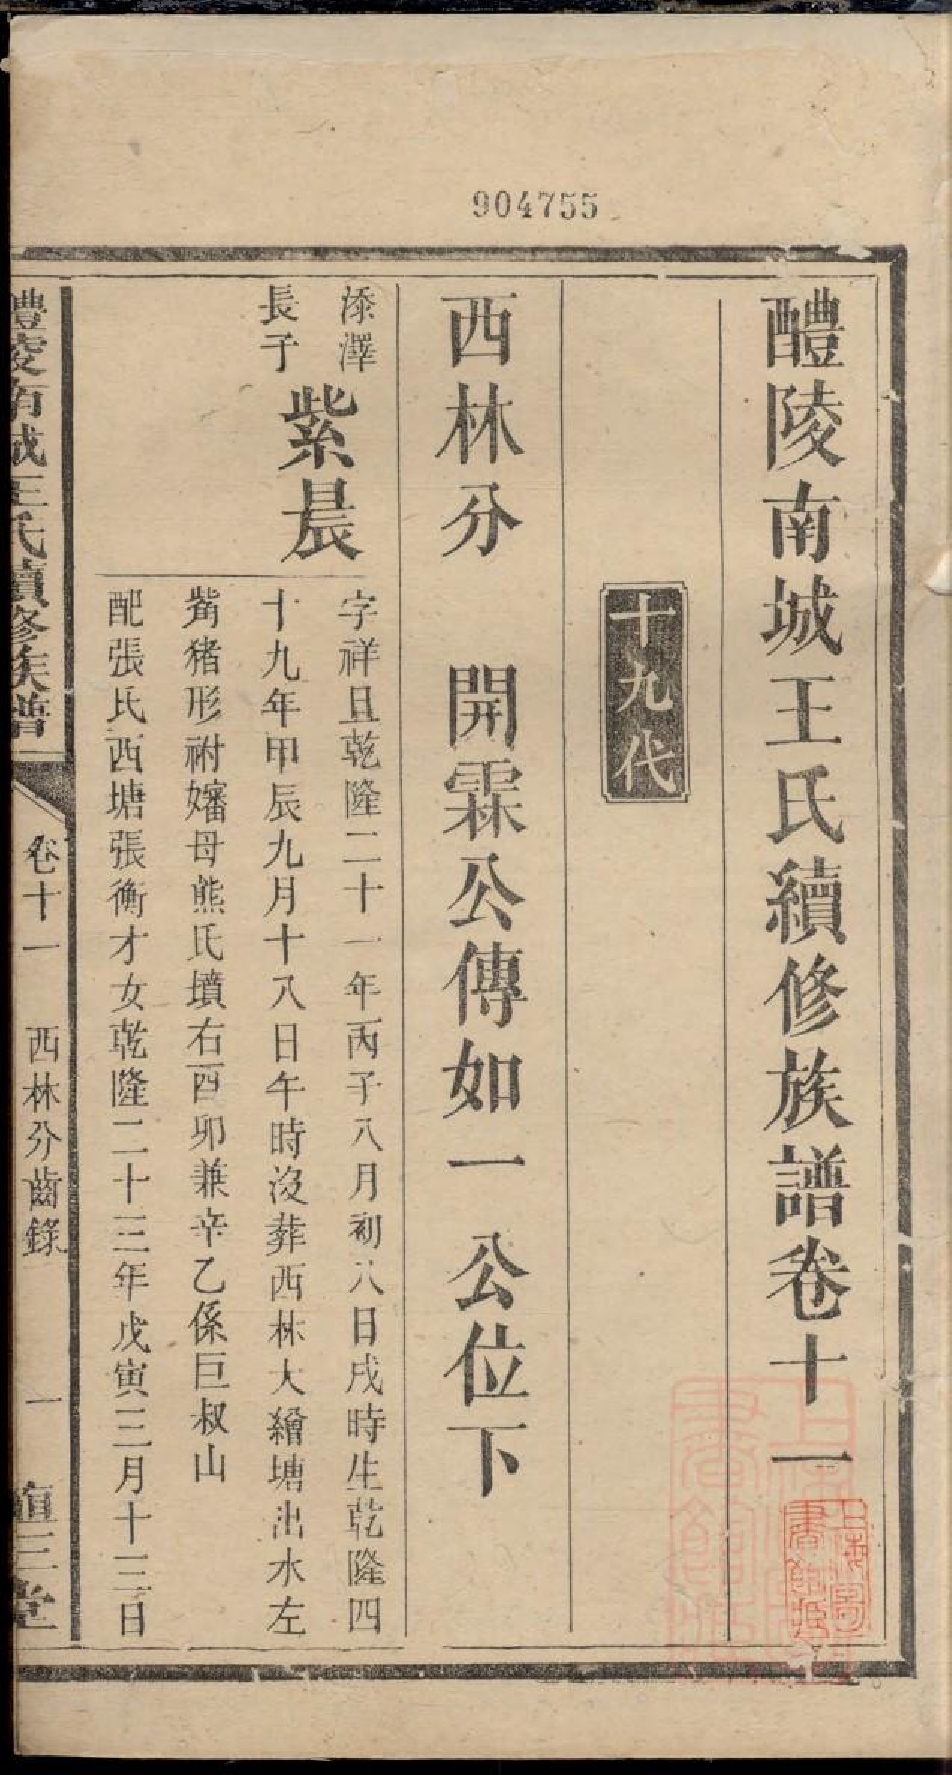 904755
醴陵南城王氏續修族譜卷十一
十九代
西林分 開霖公傳如一 公位下
添澤
長子
紫晨
字祥且乾隆二十一年丙子八月初八日戌時生乾隆四
十九年甲辰九月十八日午時沒葬西林大繪塘出水左
觜猪形祔嬸母熊氏墳右酉卯兼辛乙係巨叔山
配張氏西塘張衡才女乾隆二十三年戊寅三月十三日
醴陵南城王氏續修族譜
卷十一 西林分齒錄 一
三堂